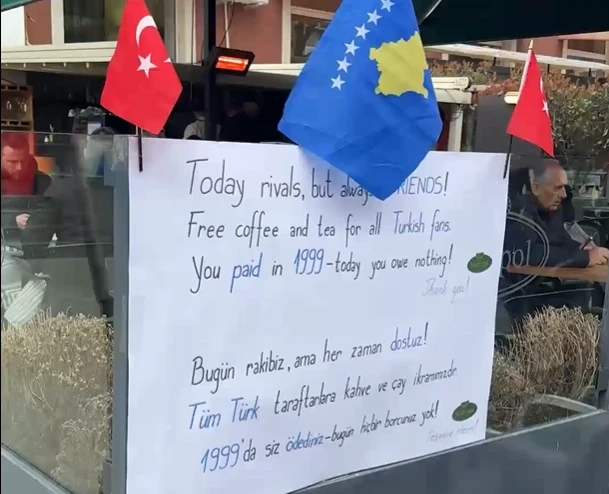 Today rivals, but always FRIENDS!
Free coffee and tea for all Turkish fans.
You paid in 1999-today you owe nothing!
Thank you!
Bugün rakibiz, ama her zaman dostuz!
Tüm Türk taraftarlara kahve ve çay ikramımızdır.
1999'da siz ödediniz-bugün hiçbir borcunuz yok!